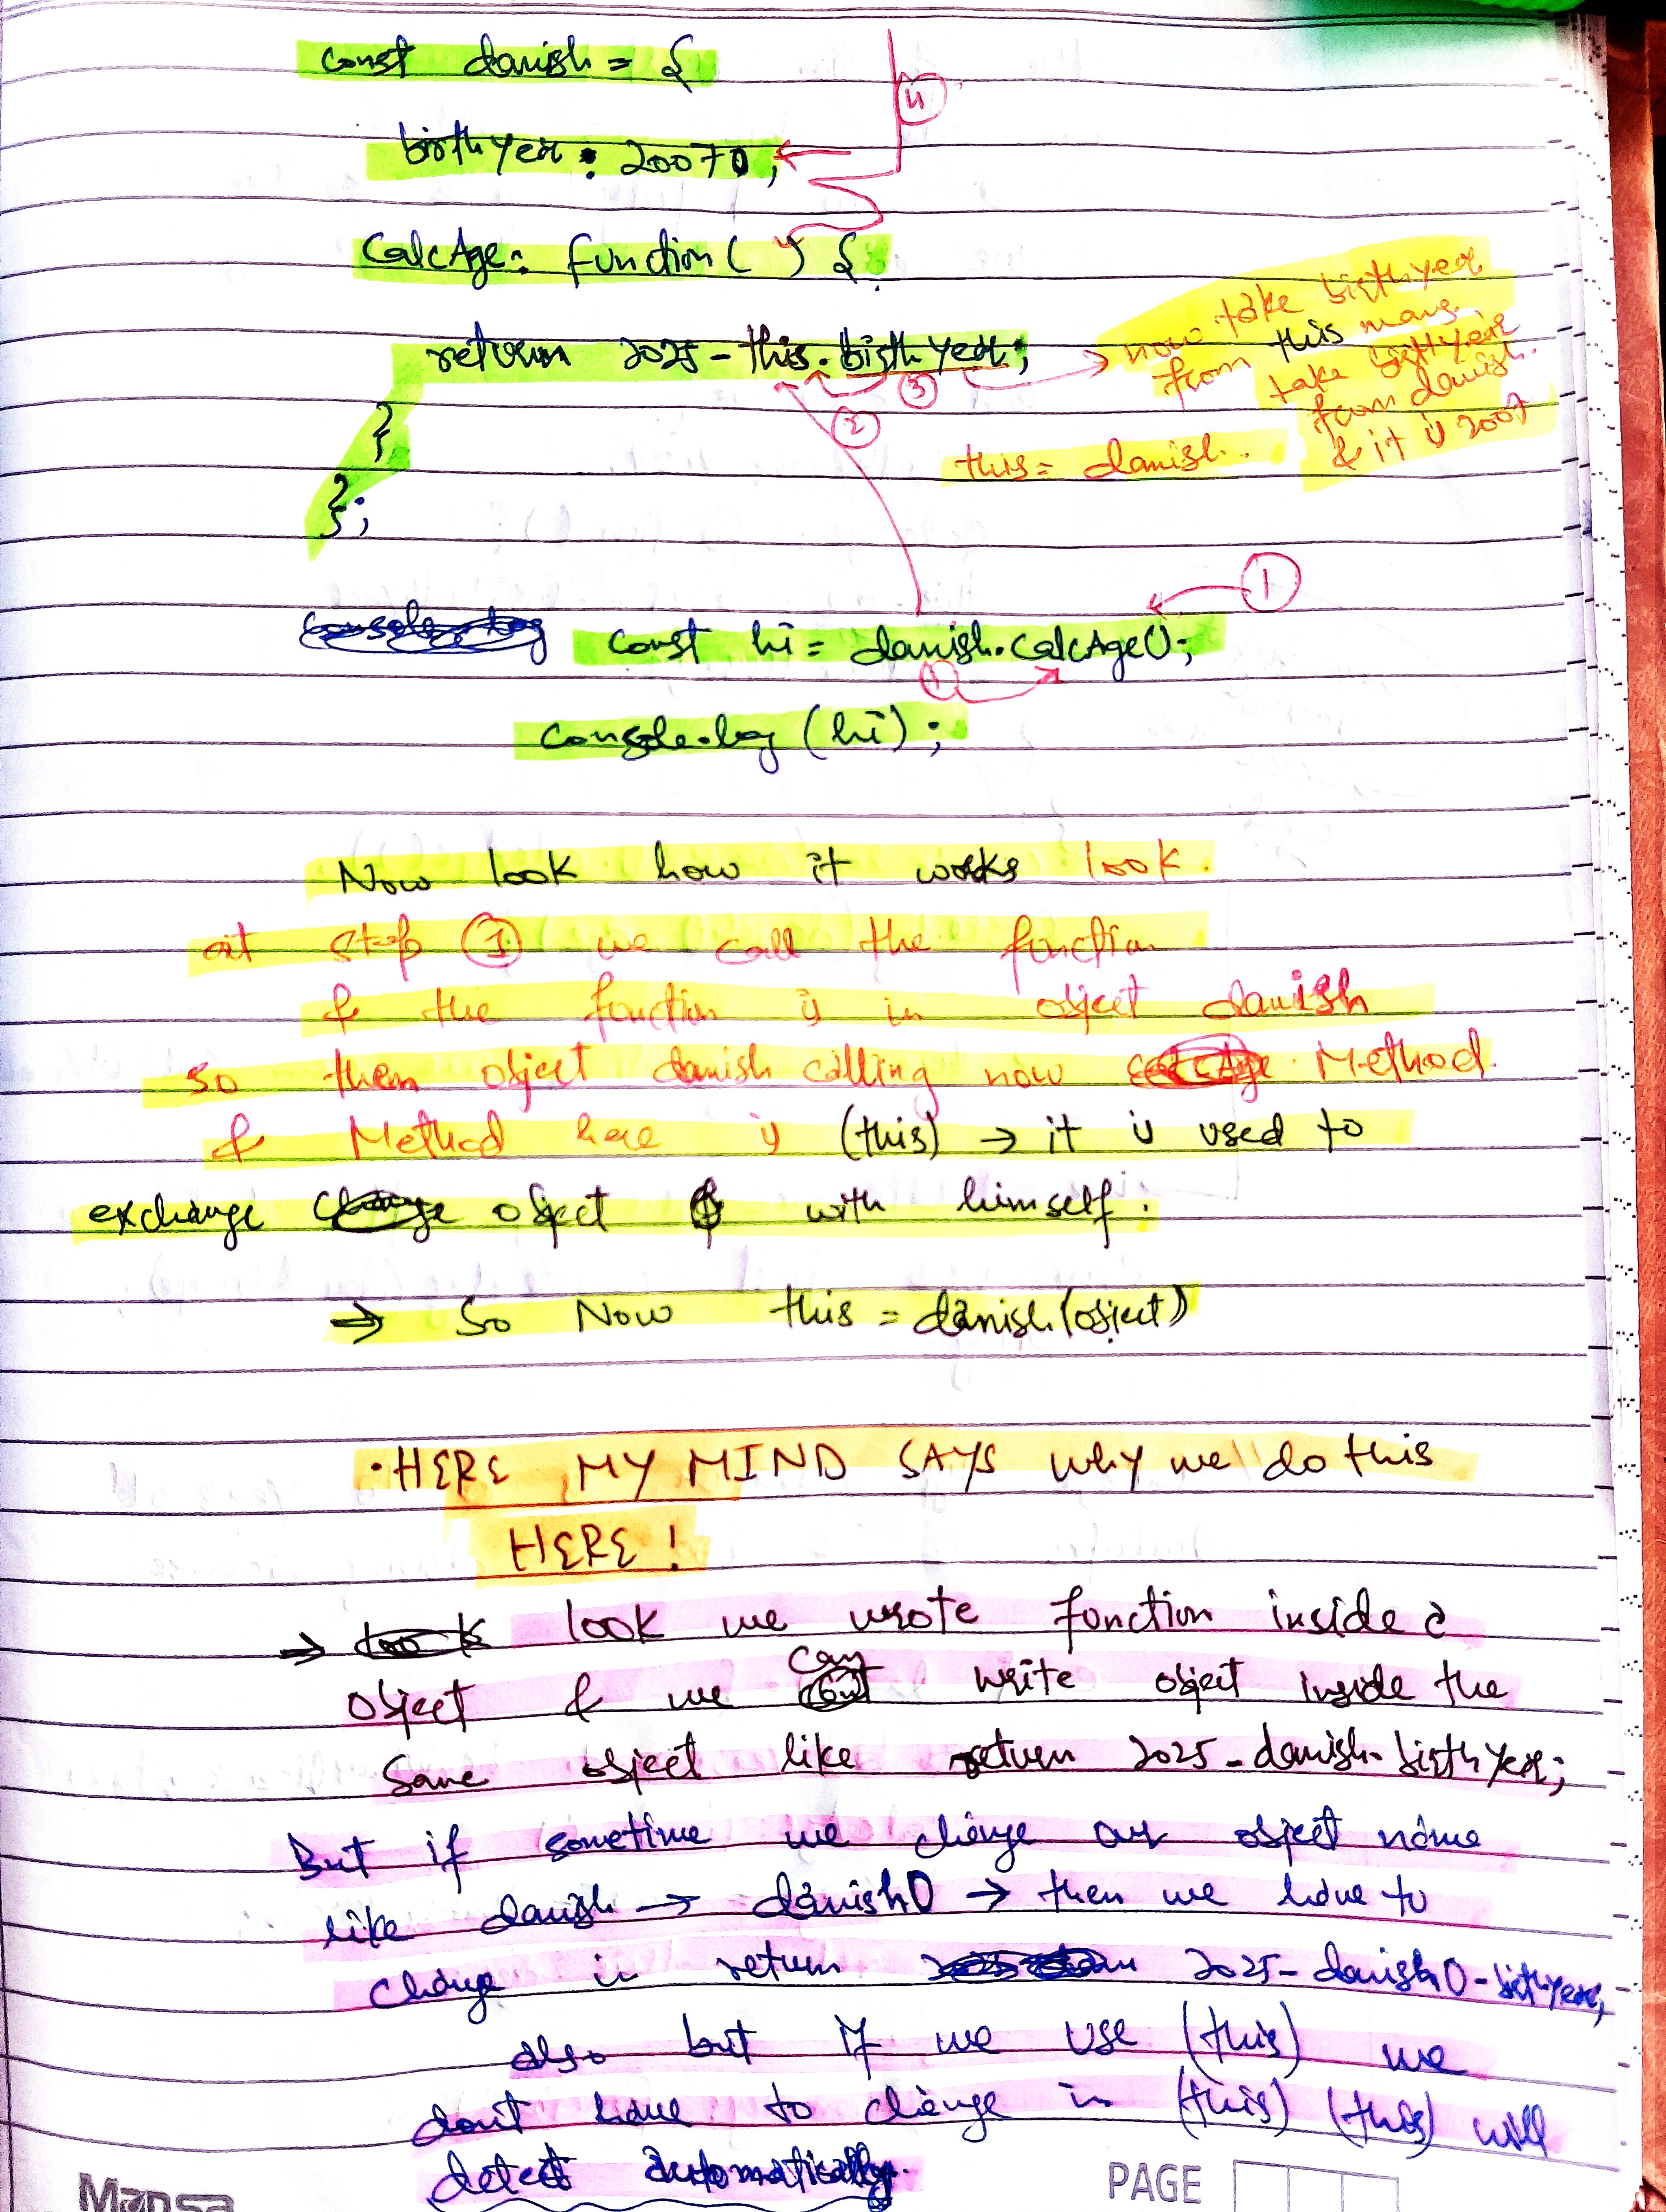 const danish = {
birthYear : 2007,
CalcAge: function ( ) {
return 2025 - this. birthYear;
}
};
now take birthYear
from this means
take birthYear
from danish
& it is 2007
this = danish.
4
3
2
1
const hi = danish.CalcAge();
1
console.log (hi) ;
Now look how it works look.
at step 1 we call the function
& the function is in object danish
so then object danish calling now Method
& Method here is (this) → it is used to
exchange object with himself.
→ So Now this = danish (object)
• HERE MY MIND SAYS why we do this
HERE !
→ look we wrote function inside a
object & we can write object inside the
same object like return 2025 - danish. birthYear;
But if sometime we change our object name
like danish → danish0 → then we have to
change in return 2025 - danish0 - birthYear;
also but if we use (this) we
don't have to change in (this) (this) will
detect automatically.
Mansa
PAGE